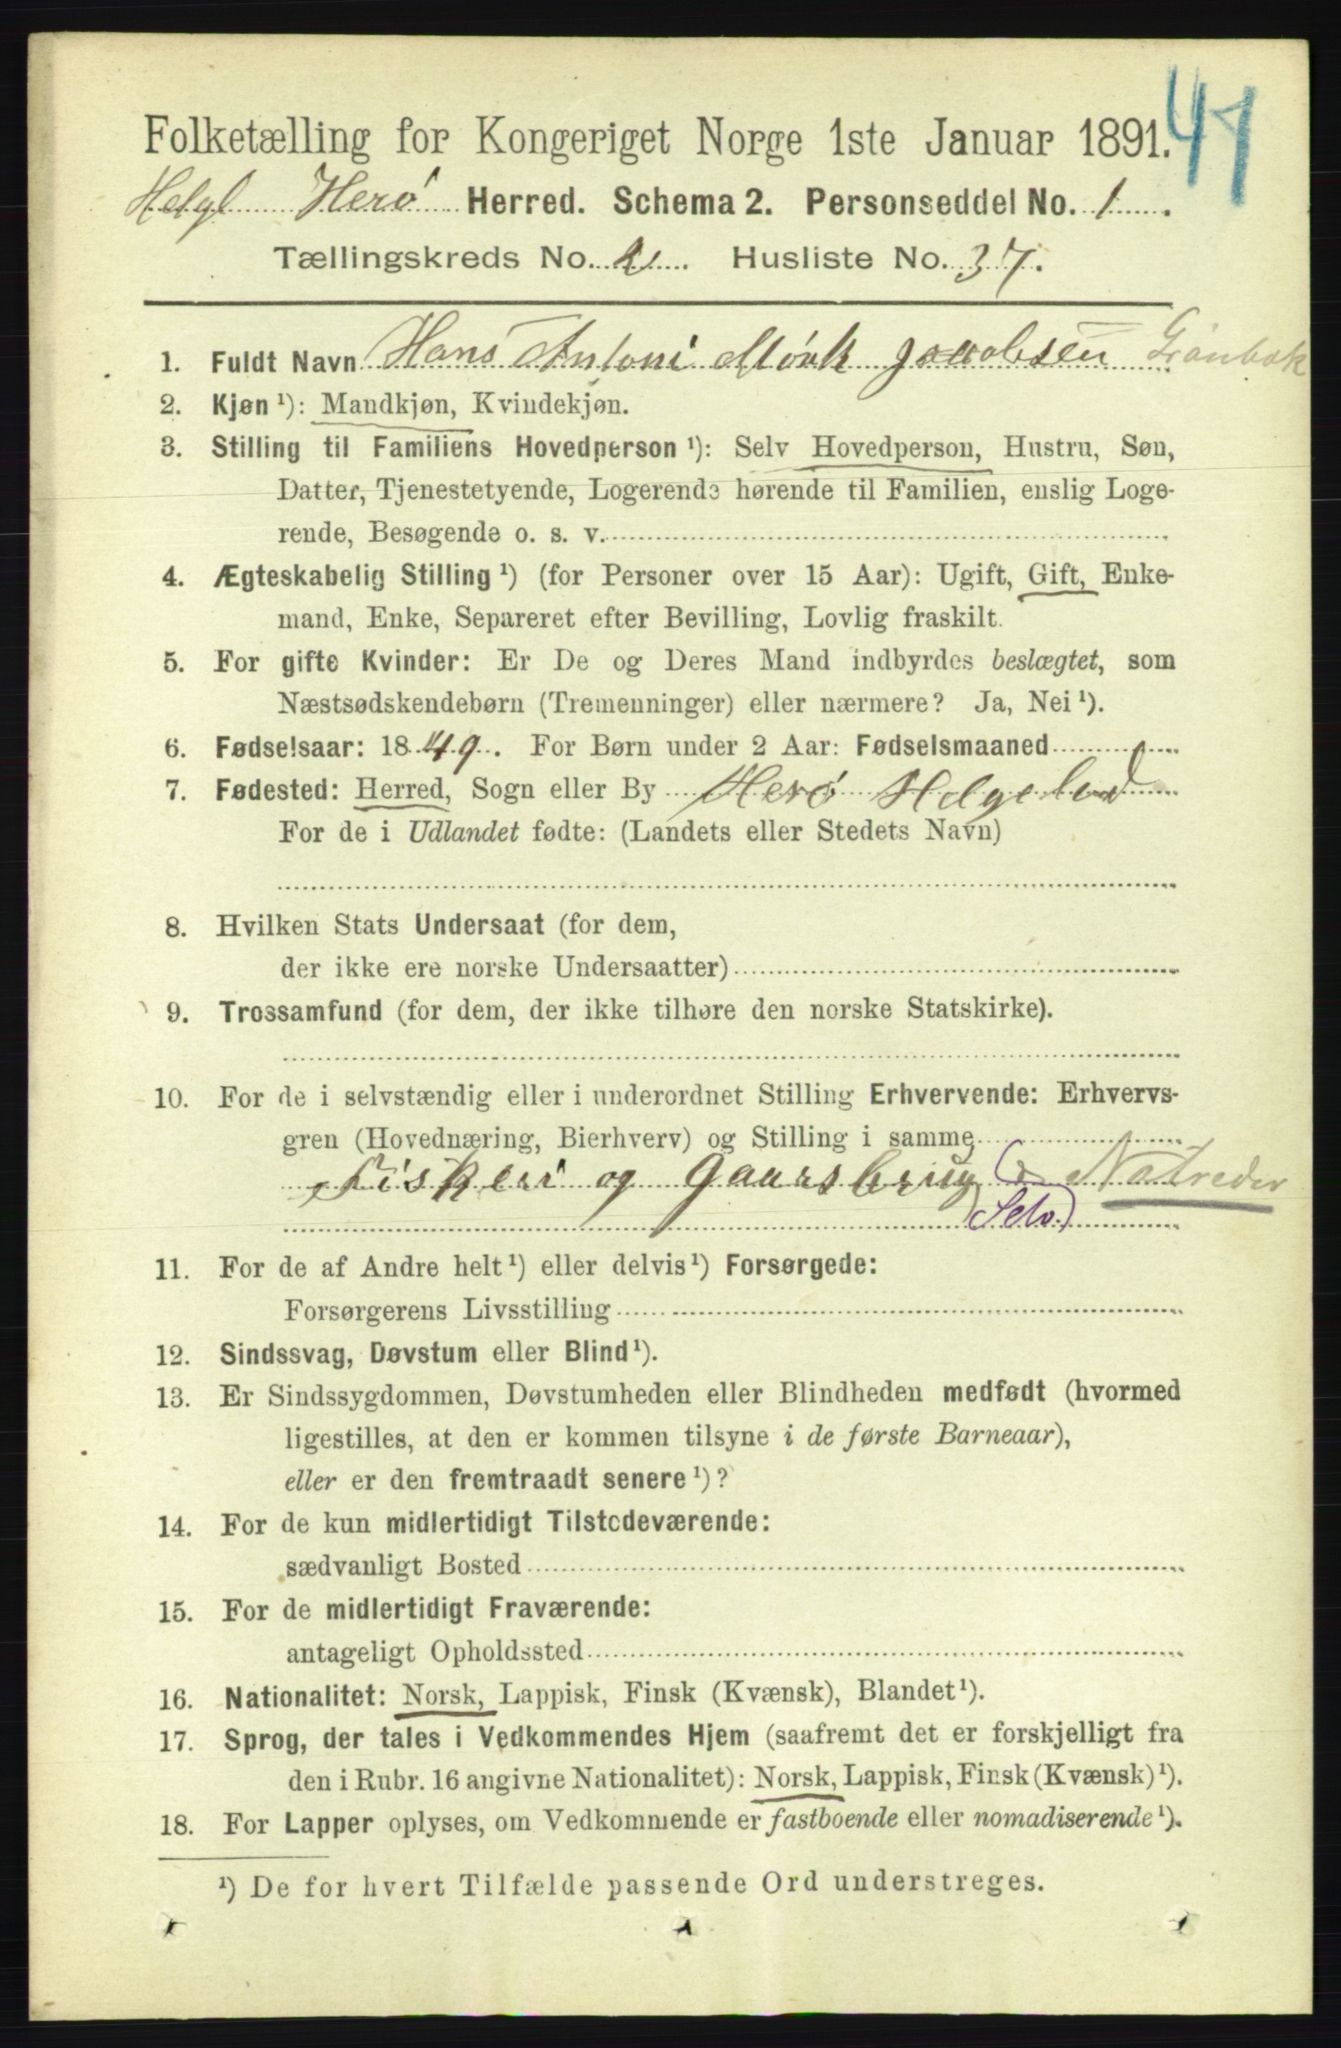 47
Folketælling for Kongeriget Norge 1ste Januar 1891.
Helgl Herø Herred. Schema 2. Personseddel No. 1.
Tællingskreds No. 2. Husliste No. 37.
1. Fuldt Navn Hans Antoni Mørk Jacobsen Grønbæk
2. Kjøn ¹): Mandkjøn, Kvindekjøn.
3. Stilling til Familiens Hovedperson ¹): Selv Hovedperson, Hustru, Søn,
Datter, Tjenestetyende, Logerende hørende til Familien, enslig Loge-
rende, Besøgende o. s. v.
4. Ægteskabelig Stilling ¹) (for Personer over 15 Aar): Ugift, Gift, Enke-
mand, Enke, Separeret efter Bevilling, Lovlig fraskilt.
5. For gifte Kvinder: Er De og Deres Mand indbyrdes beslægtet, som
Næstsødskendebørn (Tremenninger) eller nærmere? Ja, Nei ¹).
6. Fødselsaar: 1849. For Børn under 2 Aar: Fødselsmaaned
7. Fødested: Herred, Sogn eller By Herø Helgeland
For de i Udlandet fødte: (Landets eller Stedets Navn)
8. Hvilken Stats Undersaat (for dem,
der ikke ere norske Undersaatter)
9. Trossamfund (for dem, der ikke tilhøre den norske Statskirke).
10. For de i selvstændig eller i underordnet Stilling Erhvervende: Erhvervs-
gren (Hovednæring, Bierhverv) og Stilling i samme
Fiskeri og Gaarsbrug Notreder
(Selv.)
11. For de af Andre helt ¹) eller delvis ¹) Forsørgede:
Forsørgerens Livsstilling
12. Sindssvag, Døvstum eller Blind ¹).
13. Er Sindssygdommen, Døvstumheden eller Blindheden medfødt (hvormed
ligestilles, at den er kommen tilsyne i de første Barneaar),
eller er den fremtraadt senere ¹)?
14. For de kun midlertidigt Tilstedeværende:
sædvanligt Bosted
15. For de midlertidigt Fraværende:
antageligt Opholdssted
16. Nationalitet: Norsk, Lappisk, Finsk (Kvænsk), Blandet ¹).
17. Sprog, der tales i Vedkommendes Hjem (saafremt det er forskjelligt fra
den i Rubr. 16 angivne Nationalitet): Norsk, Lappisk, Finsk (Kvænsk) ¹).
18. For Lapper oplyses, om Vedkommende er fastboende eller nomadiserende ¹).
¹) De for hvert Tilfælde passende Ord understreges.